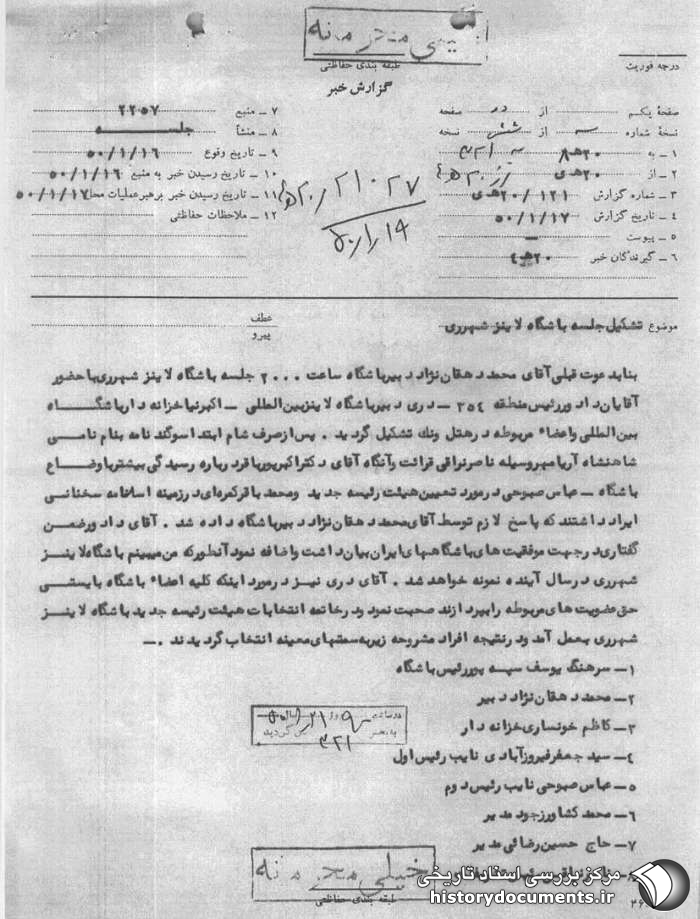 خیلی محرمانه
طبقه بندی حفاظتی
درجه فوریت
گزارش خبر
صفحهٔ یکم از در صفحه
نسخهٔ شماره سه از شش نسخه
۱ ـ به ۲۰هـ۸
۲ ـ از ۲۰هـ‍ی
۳ ـ شماره گزارش ۱۲۱ /۲۰هـ‍ی
۴ ـ تاریخ گزارش ۵۰/۱/۱۷
۵ ـ پیوست —
۶ ـ گیرندگان خبر ۲۰هـ۴
۷ ـ منبع ۲۲۵۷
۸ ـ منشأ جلسه
۹ ـ تاریخ وقوع ۵۰/۱/۱۶
۱۰ ـ تاریخ رسیدن خبر به منبع ۵۰/۱/۱۶
۱۱ ـ تاریخ رسیدن خبر برهبر عملیات محل ۵۰/۱/۱۷
۱۲ ـ ملاحظات حفاظتی
۲۱۰۲۷
موضوع تشکیل جلسه باشگاه لاینز شهرری
عطف
پیرو
بنابدعوت قبلی آقای محمد دهقان نژاد دبیرباشگاه ساعت ۲۰۰۰ جلسه باشگاه لاینز شهرری باحضور
آقایان داد ور رئیس منطقه ۳۵۴ ـ دری دبیرباشگاه لاینزبین المللی ـ اکبرنیا خزانه دار باشگاه
بین المللی و اعضاء مربوطه در هتل ونک تشکیل گردید . پس از صرف شام ابتدا سوگند نامه بنام نامی
شاهنشاه آریامهر وسیله ناصر نراقی قرائت و آنگاه آقای دکتر اکبر پورباقر درباره رسیدگی بیشتر باوضاع
باشگاه ـ عباس صبوحی در مورد تعیین هیئت رئیسه جدید و محمد باقر کمره ای در زمینه اساسنامه سخنانی
ایراد داشتند که پاسخ لازم توسط آقای محمد دهقان نژاد دبیرباشگاه داده شد . آقای داد ور ضمن
گفتاری در جهت موفقیت های باشگاههای ایران بیان داشت و اضافه نمود آنطور که من میبینم باشگاه لاینز
شهرری در سال آینده نمونه خواهد شد . آقای دری نیز در مورد اینکه کلیه اعضاء باشگاه بایستی
حق عضویت های مربوطه را بپردازند صحبت نمود و در خاتمه انتخابات هیئت رئیسه جدید باشگاه لاینز
شهرری بعمل آمد و در نتیجه افراد مشروحه زیر به سمتهای معینه انتخاب گردیدند . ـ
۱ـ سرهنگ یوسف سپه پور رئیس باشگاه
۲ـ محمد دهقان نژاد دبیر
۳ـ کاظم خونساری خزانه دار
۴ـ سید جعفر فیروزآبادی نایب رئیس اول
۵ـ عباس صبوحی نایب رئیس دوم
۶ـ محمد کشاورز جود مدیر
۷ـ حاج حسین رضائی مدیر
۳۲۱
خیلی محرمانه
طبقه بندی حفاظتی
مرکز بررسی اسناد تاریخی
historydocuments.ir